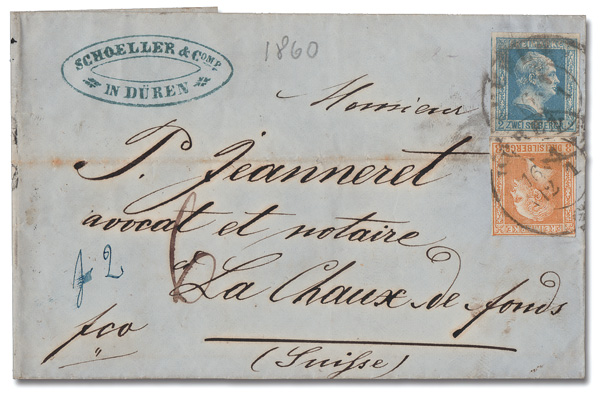 SCHOELLER & COMP.
IN DÜREN
1860
Monsieur
P. Jeanneret
avocat et notaire
La Chaux de fonds
(Suisse)
fco
2
6
ZWEI SILBERGR.